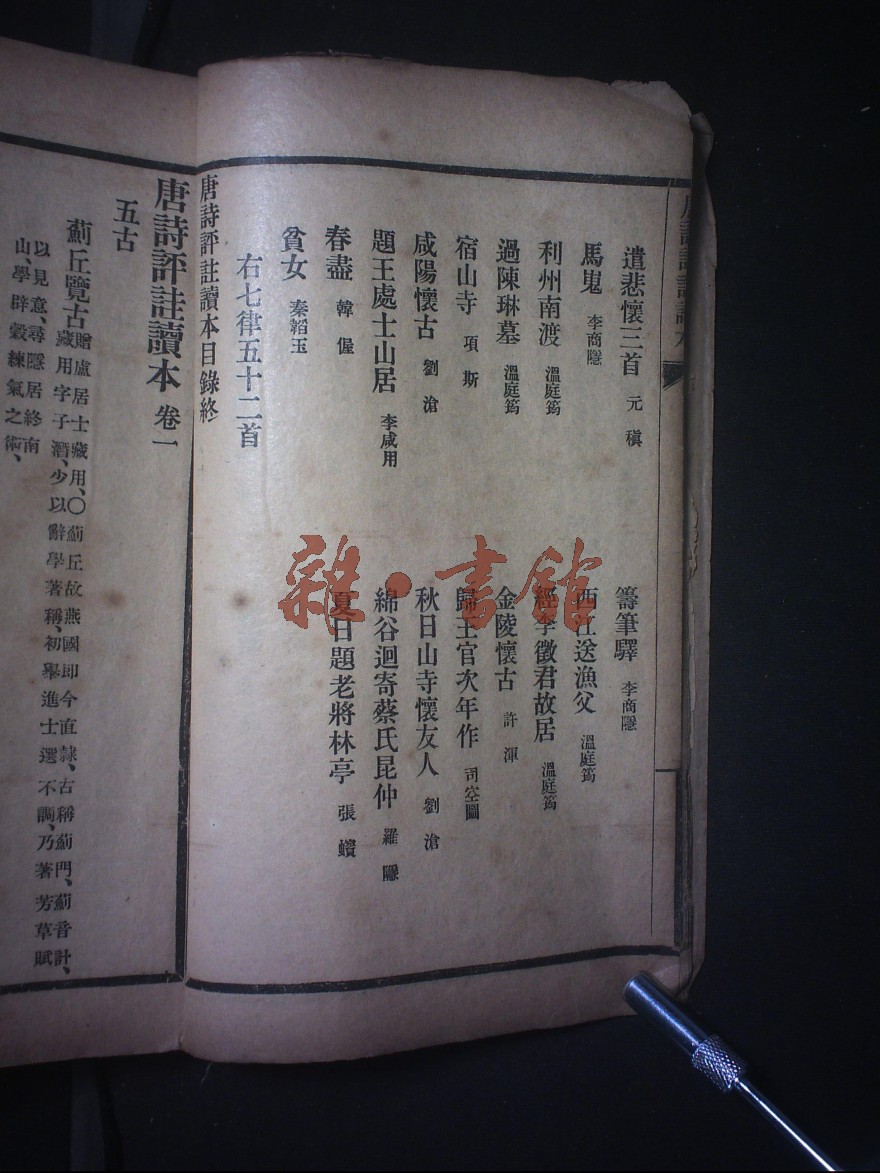 遣悲懷三首 元稹
籌筆驛 李商隱
馬嵬 李商隱
西江送漁父 溫庭筠
利州南渡 溫庭筠
經李徵君故居 溫庭筠
過陳琳墓 溫庭筠
金陵懷古 許渾
宿山寺 項斯
歸王官次年作 司空圖
咸陽懷古 劉滄
秋日山寺懷友人 劉滄
題王處士山居 李咸用
綿谷迴寄蔡氏昆仲 羅隱
春盡 韓偓
夏日題老將林亭 張蠙
貧女 秦韜玉
右七律五十二首
唐詩評註讀本目錄終
唐詩評註讀本 卷一
五古
薊丘覽古
贈盧居士藏用、〇薊丘故燕國即今直隸、古稱薊門、薊音計、
藏用字子潛、少以辭學著稱、初舉進士選不調、乃著芳草賦
以見意、尋隱居終南
山、學辟穀練氣之術、
雜·書館